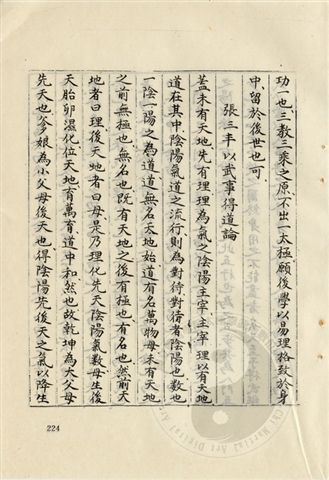 功一也三教三乘之原不出一太極願後學以易理格致於身
中留於後世也可
張三丰以武事得道論
蓋未有天地先有理理為氣之陰陽主宰主宰理以有天地
道在其中陰陽氣道之流行則為對待對待者陰陽也數也
一陰一陽之為道道無名天地始道有名萬物母未有天地
之前無極也無名也既有天地之後有極也有名也然前天
地者曰理後天地者曰母是乃理化先天陰陽氣數母生後
天胎卵濕化位天地育萬育道中和然也故乾坤為大父母
先天也爹娘為小父母後天也得陰陽先後天之氣以降生
224